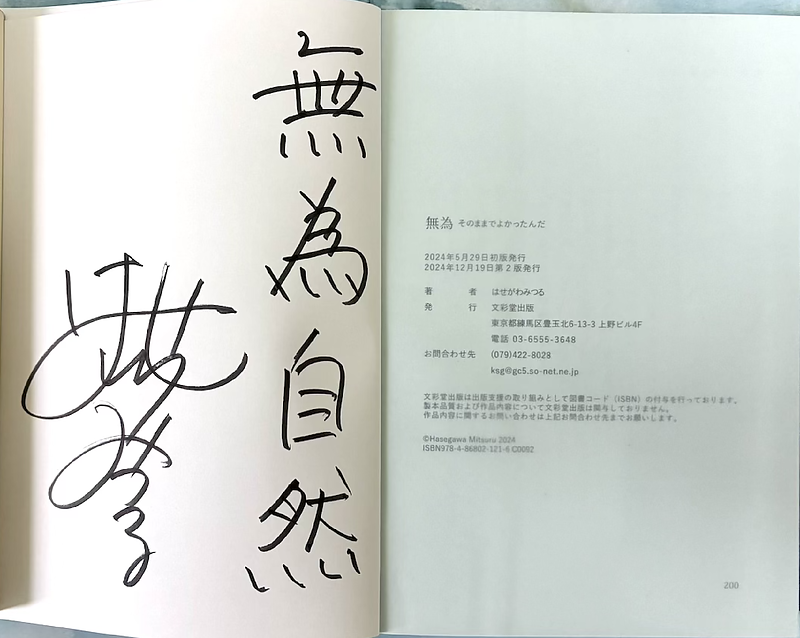 無為自然
はせ
みつる
無為 そのままでよかったんだ
2024年5月29日初版発行
2024年12月19日第2版発行
著 者 はせがわみつる
発 行 文彩堂出版
東京都練馬区豊玉北6-13-3 上野ビル4F
電話 03-6555-3648
お問合わせ先 (079)422-8028
ksg@gc5.so-net.ne.jp
文彩堂出版は出版支援の取り組みとして図書コード（ISBN）の付与を行っております。
製本品質および作品内容について文彩堂出版は関与しておりません。
作品内容に関するお問い合わせは上記お問合わせ先までお願いします。
©Hasegawa Mitsuru 2024
ISBN978-4-86802-121-6 C0092
200